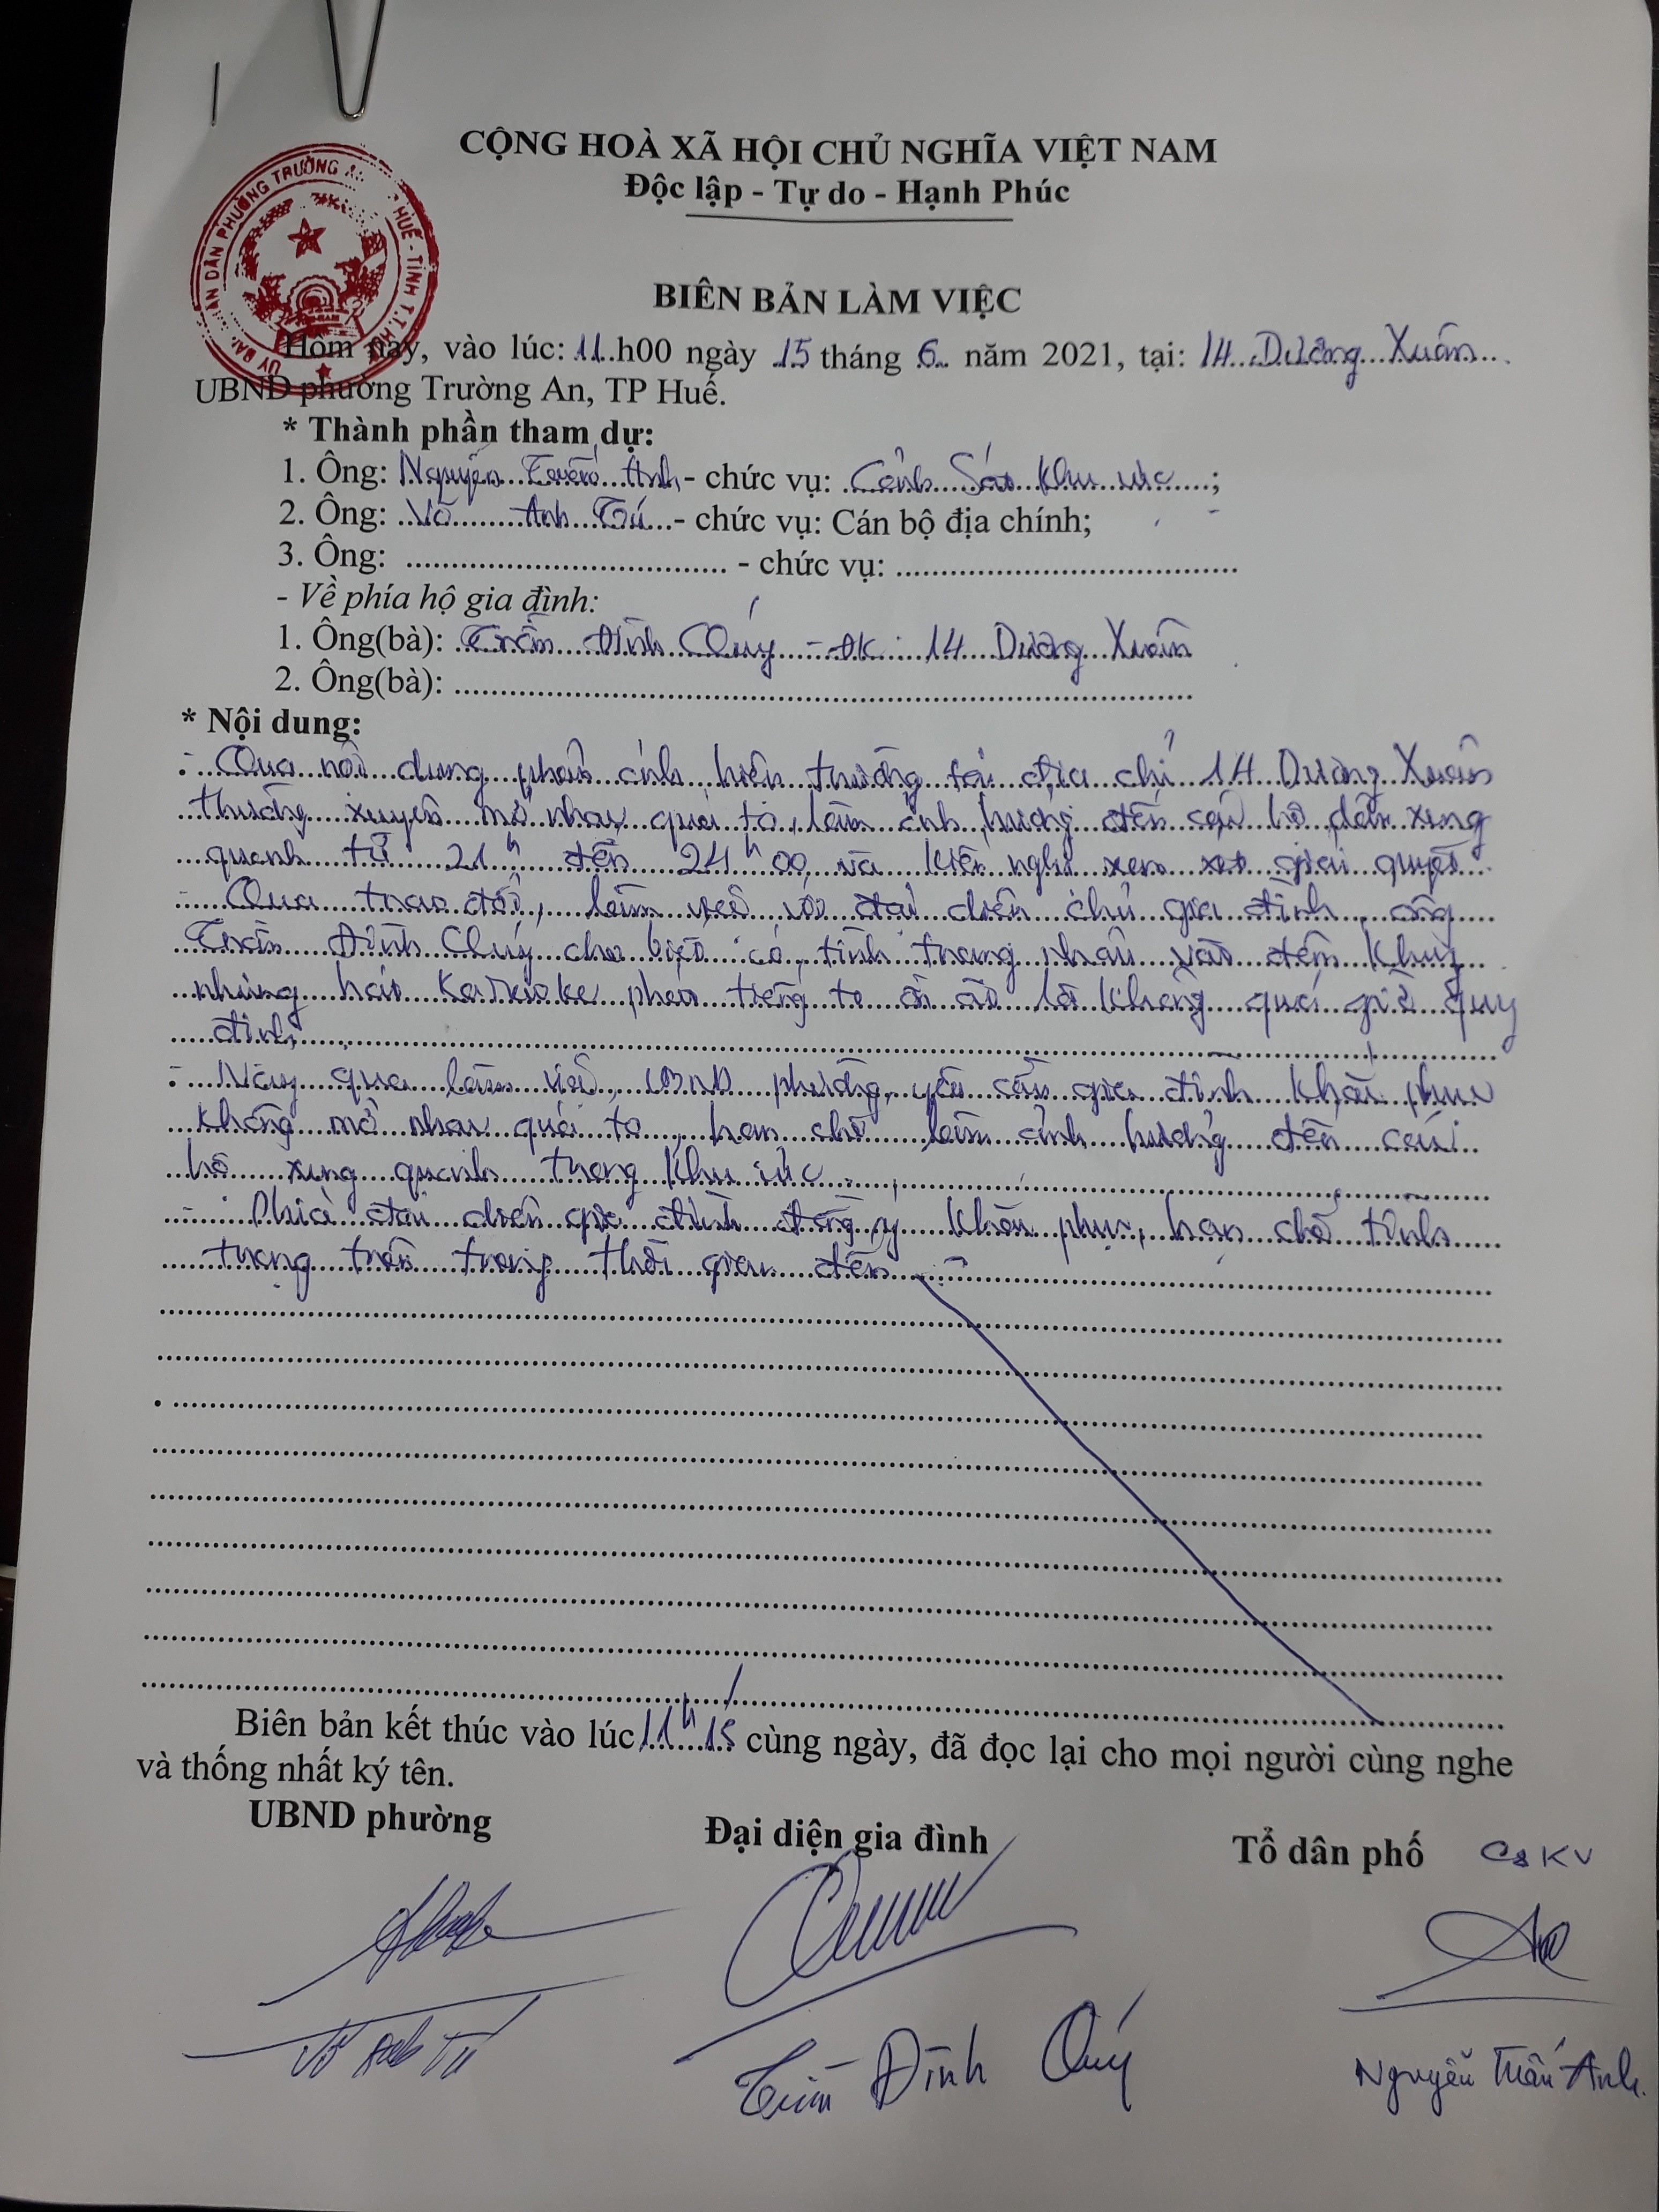 CỘNG HOÀ XÃ HỘI CHỦ NGHĨA VIỆT NAM
Độc lập - Tự do - Hạnh Phúc
BIÊN BẢN LÀM VIỆC
Hôm nay, vào lúc: 11 h00 ngày 15 tháng 6 năm 2021, tại: 14 Dương Xuân
UBND phường Trường An, TP Huế.
* Thành phần tham dự:
1. Ông: Nguyễn Tuấn Anh - chức vụ: Cảnh Sát Khu vực ;
2. Ông: Võ Anh Tú - chức vụ: Cán bộ địa chính;
3. Ông: - chức vụ:
- Về phía hộ gia đình:
1. Ông(bà): Trần Đình Quý - ĐC: 14 Dương Xuân
2. Ông(bà):
* Nội dung:
- Qua nội dung phản ánh hiện trường tại địa chỉ 14 Dương Xuân
thường xuyên mở nhạc quá to, làm ảnh hưởng đến các hộ dân xung
quanh từ 21h đến 24h00 và kiến nghị xem xét giải quyết.
- Qua trao đổi, làm việc với đại diện chủ gia đình, ông
Trần Đình Quý cho biết có tình trạng nhậu vào đêm khuya
nhưng hát Karaoke phát tiếng to ồn ào là không quá giờ quy
định.
- Nay qua làm việc, UBND phường yêu cầu gia đình khắc phục
không mở nhạc quá to, hạn chế làm ảnh hưởng đến các
hộ xung quanh trong khu vực.
- Phía đại diện gia đình đồng ý khắc phục, hạn chế tình
trạng trên trong thời gian đến.
Biên bản kết thúc vào lúc 11h15 cùng ngày, đã đọc lại cho mọi người cùng nghe
và thống nhất ký tên.
UBND phường Đại diện gia đình Tổ dân phố CSKV
Võ Anh Tú Trần Đình Quý Nguyễn Tuấn Anh